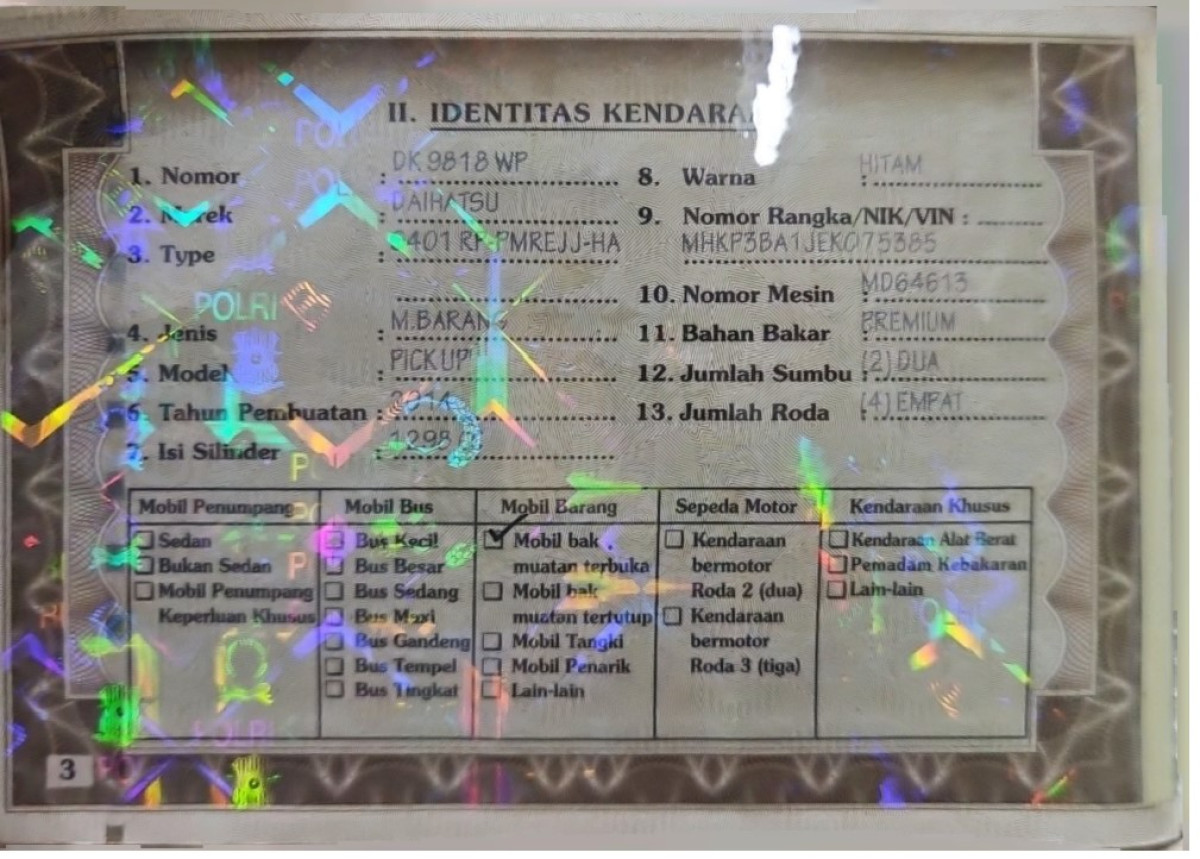 II. IDENTITAS KENDARA
1. Nomor : DK 9818 WP
2. Merek : DAIHATSU
3. Type : S401 RP-PMREJJ-HA
4. Jenis : M.BARANG
5. Model : PICK UP
6. Tahun Pembuatan : 2014
7. Isi Silinder : 1298
8. Warna : HITAM
9. Nomor Rangka/NIK/VIN :
MHKP3BA1JEK075385
10. Nomor Mesin : MD64613
11. Bahan Bakar : PREMIUM
12. Jumlah Sumbu : (2) DUA
13. Jumlah Roda : (4) EMPAT
Mobil Penumpang
Sedan
Bukan Sedan
Mobil Penumpang
Keperluan Khusus
Mobil Bus
Bus Kecil
Bus Besar
Bus Sedang
Bus Maxi
Bus Gandeng
Bus Tempel
Bus Tingkat
Mobil Barang
Mobil bak
muatan terbuka
Mobil bak
muatan tertutup
Mobil Tangki
Mobil Penarik
Lain-lain
Sepeda Motor
Kendaraan
bermotor
Roda 2 (dua)
Kendaraan
bermotor
Roda 3 (tiga)
Kendaraan Khusus
Kendaraan Alat Berat
Pemadam Kebakaran
Lain-lain
POLRI
POLRI
3